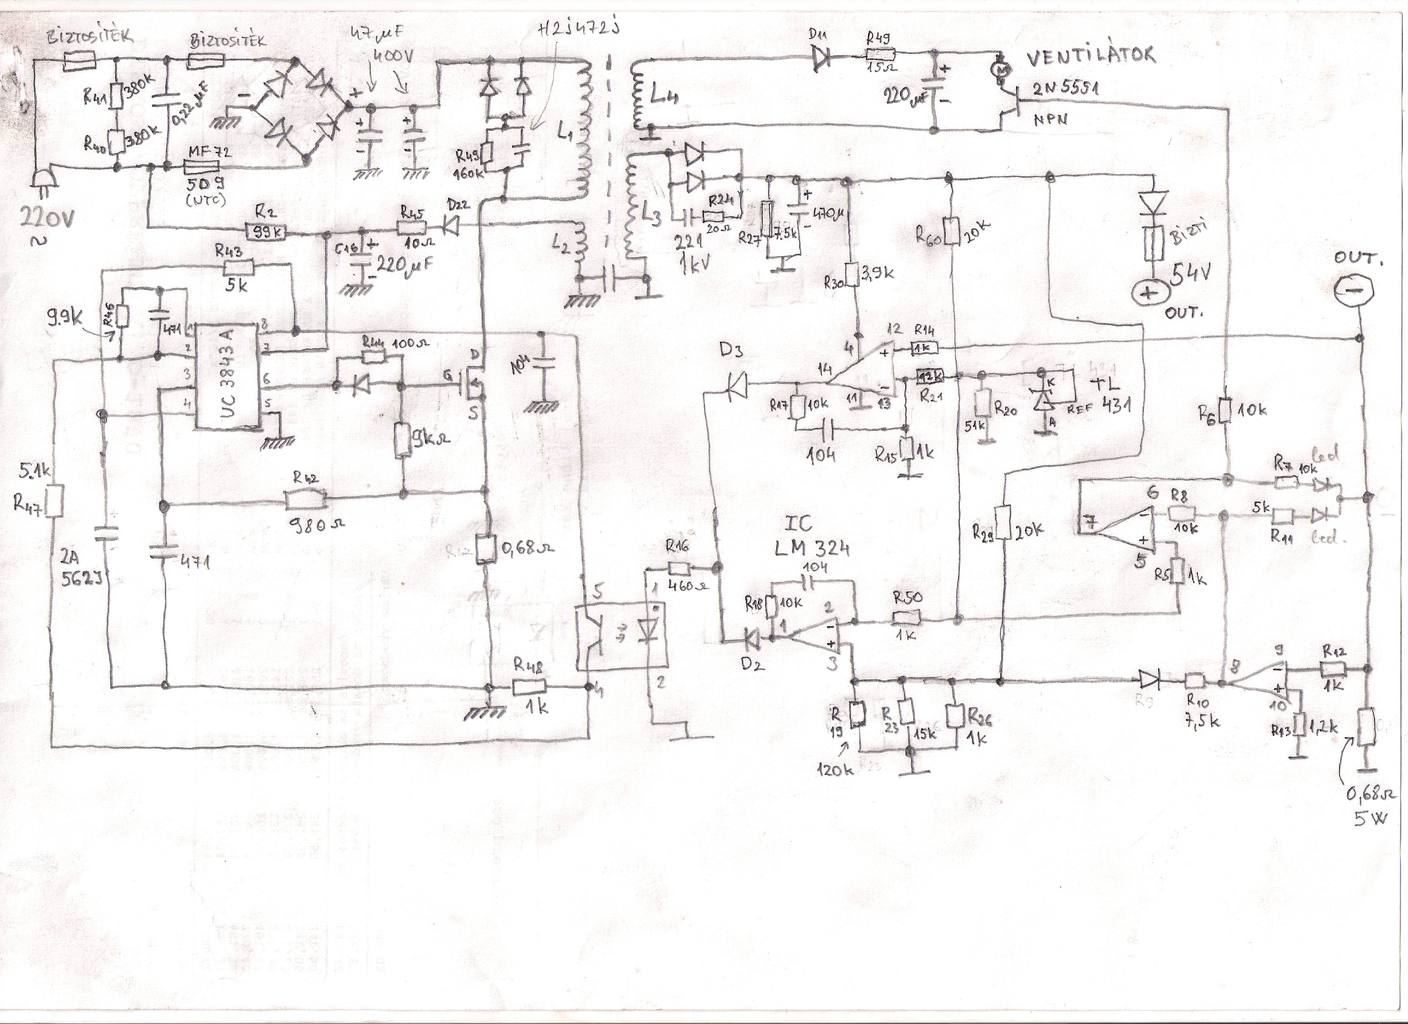 BIZTOSÍTÉK
BIZTOSÍTÉK
47µF
400V
H2j472j
D11
R49
15Ω
VENTILÁTOR
M
2N5551
NPN
220µF
+
-
R41
380k
0,22µF
R40
380k
MF72
5D9
(NTC)
220V
~
-
+
+
-
+
-
R49
160k
L1
L4
L3
L2
R2
99k
R45
10Ω
D22
C16
+
-
220µF
R24
20Ω
221
1kV
R27
7.5k
+
470µ
-
R60
20K
BIZTI
54V
+
OUT.
OUT.
-
R43
5k
9.9K
R46
471
UC3843A
1
2
3
4
8
7
6
5
R44
100Ω
G
D
S
104
9kΩ
R30
3,9k
12
R14
1k
4
14
+
-
11
13
12k
R21
D3
R17
10k
104
R15
1k
R20
51k
K
REF
A
TL
431
R6
10k
5.1k
R47
R42
980Ω
2A
562J
471
0,68Ω
IC
LM 324
104
R16
460Ω
R18
10k
1
2
3
-
+
D2
R50
1k
R29
20k
7
6
5
-
+
R8
10k
R5
1k
R7
10k
led
5k
R11
led.
5
1
4
2
R48
1k
R
19
120k
R
23
15k
R26
1k
R10
7,5k
8
9
10
-
+
R12
1k
R13
1,2k
0,68Ω
5W